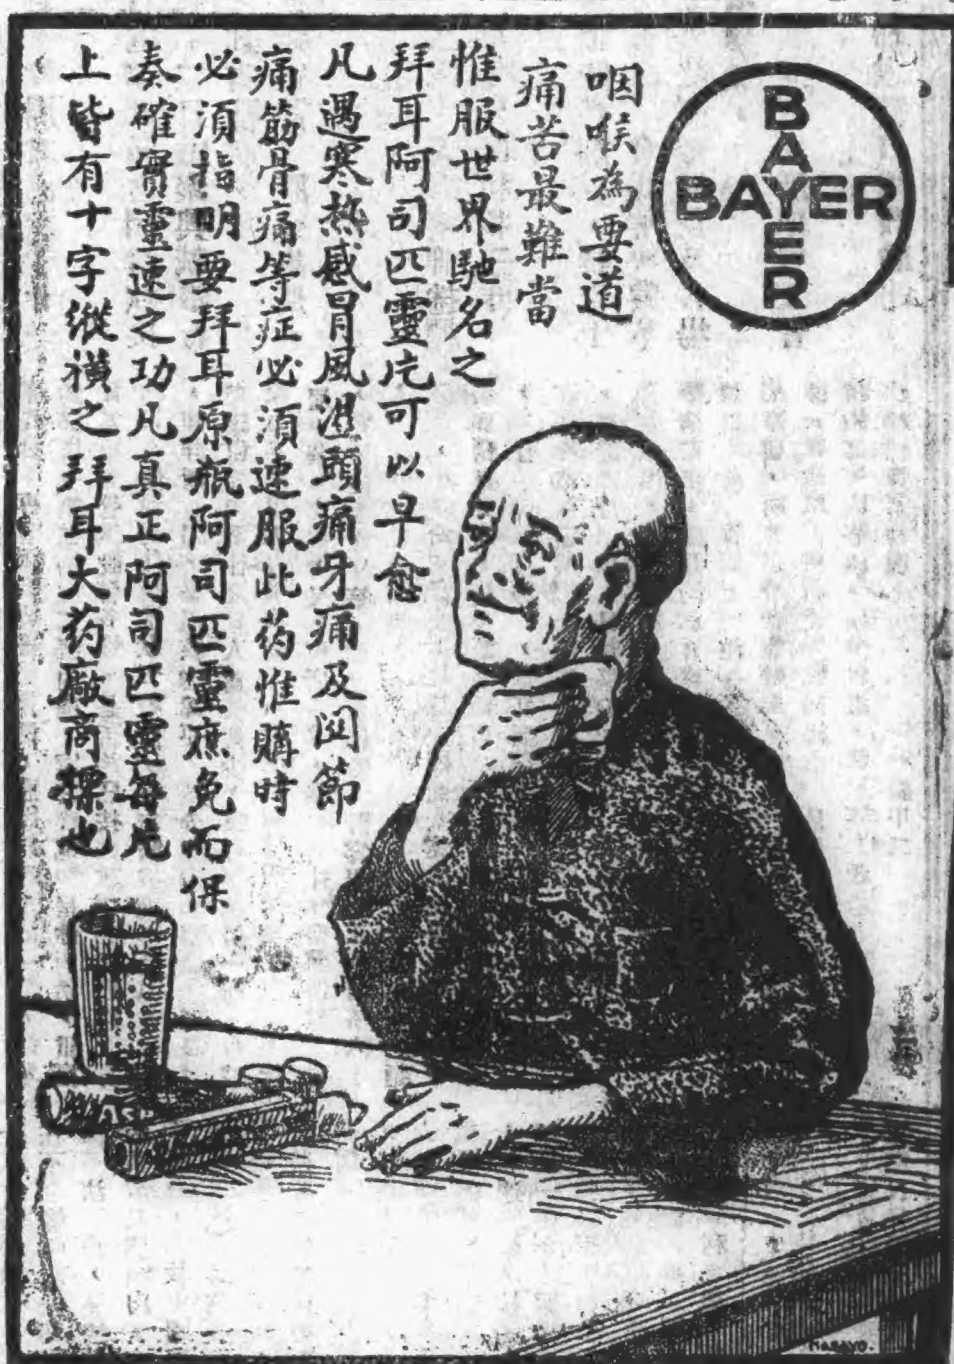 BAYER
BAYER
咽喉為要道
痛苦最難當
惟服世界馳名之
拜耳阿司匹靈片可以早愈
凡遇寒热感冒風濕頭痛牙痛及関節
痛筋骨痛等症必須速服此药惟購時
必須指明要拜耳原瓶阿司匹靈庶免而保
奏確實靈速之功凡真正阿司匹靈每片
上皆有十字縱橫之拜耳大药廠商標也